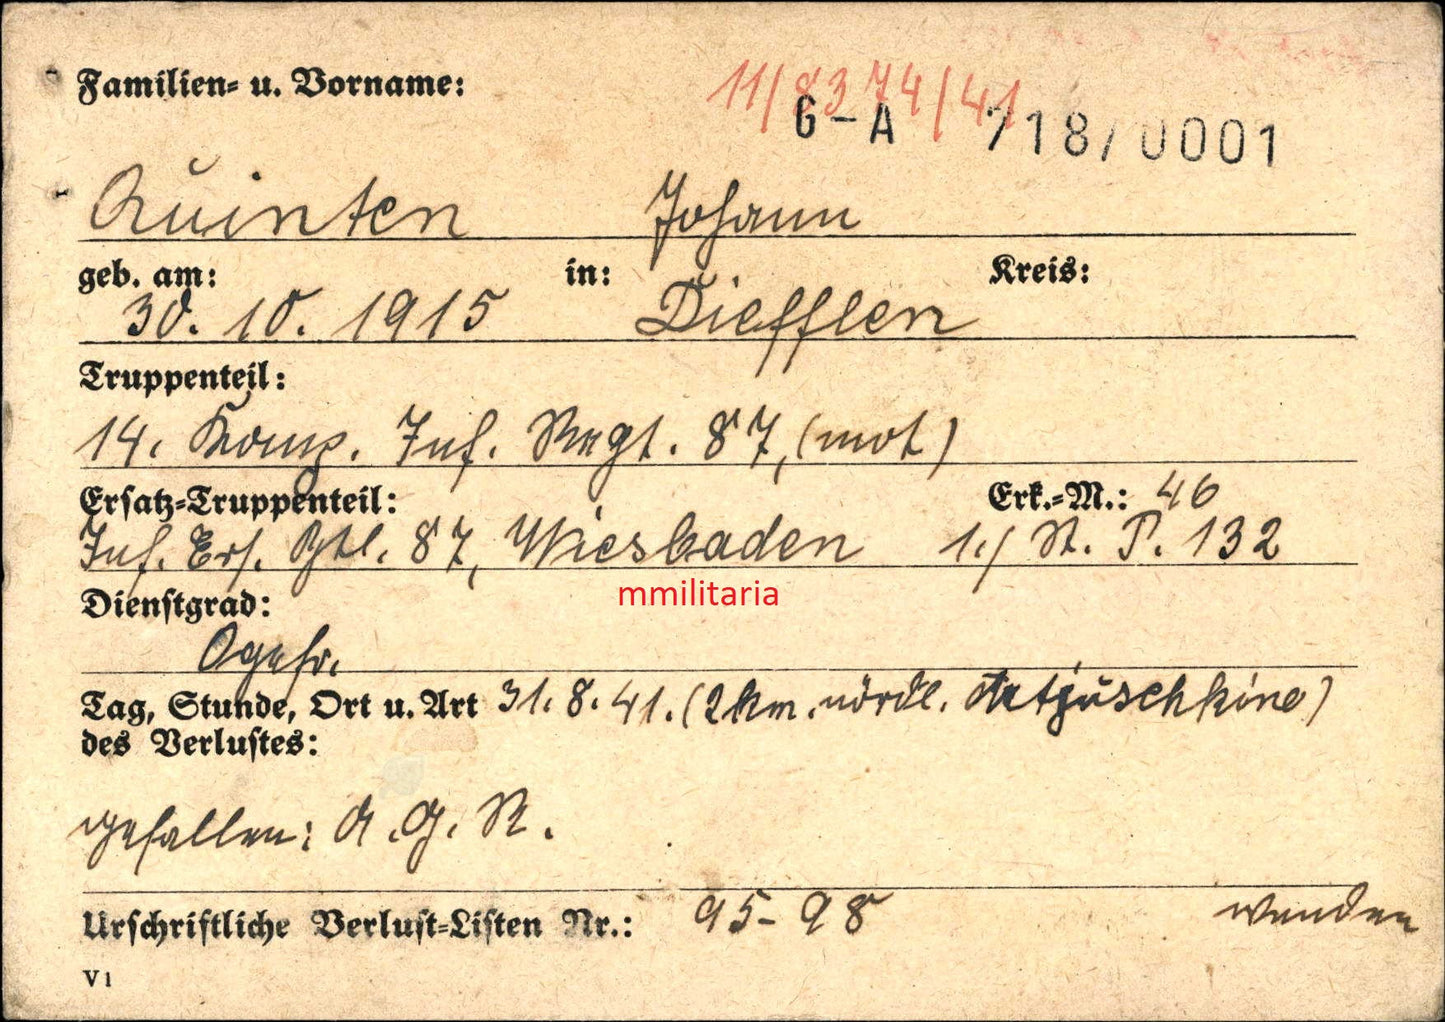 Familien- u. Vorname:
11/8374/41
G-A 718/0001
Quinten Johann
geb. am: in: Kreis:
30. 10. 1915 Diefflen
Truppenteil:
14. Komp. Inf. Regt. 87, (mot)
Ersatz-Truppenteil: Erk.-M.: 46
Inf. Ers. Btl. 87, Wiesbaden 1./ St. P. 132
mmilitaria
Dienstgrad:
Ogefr.
Tag, Stunde, Ort u. Art 31. 8. 41. (2 km. nördl.
des Verlustes:
gefallen: A. G. R.
Urschriftliche Verlust-Listen Nr.: 95-98 wenden
V 1